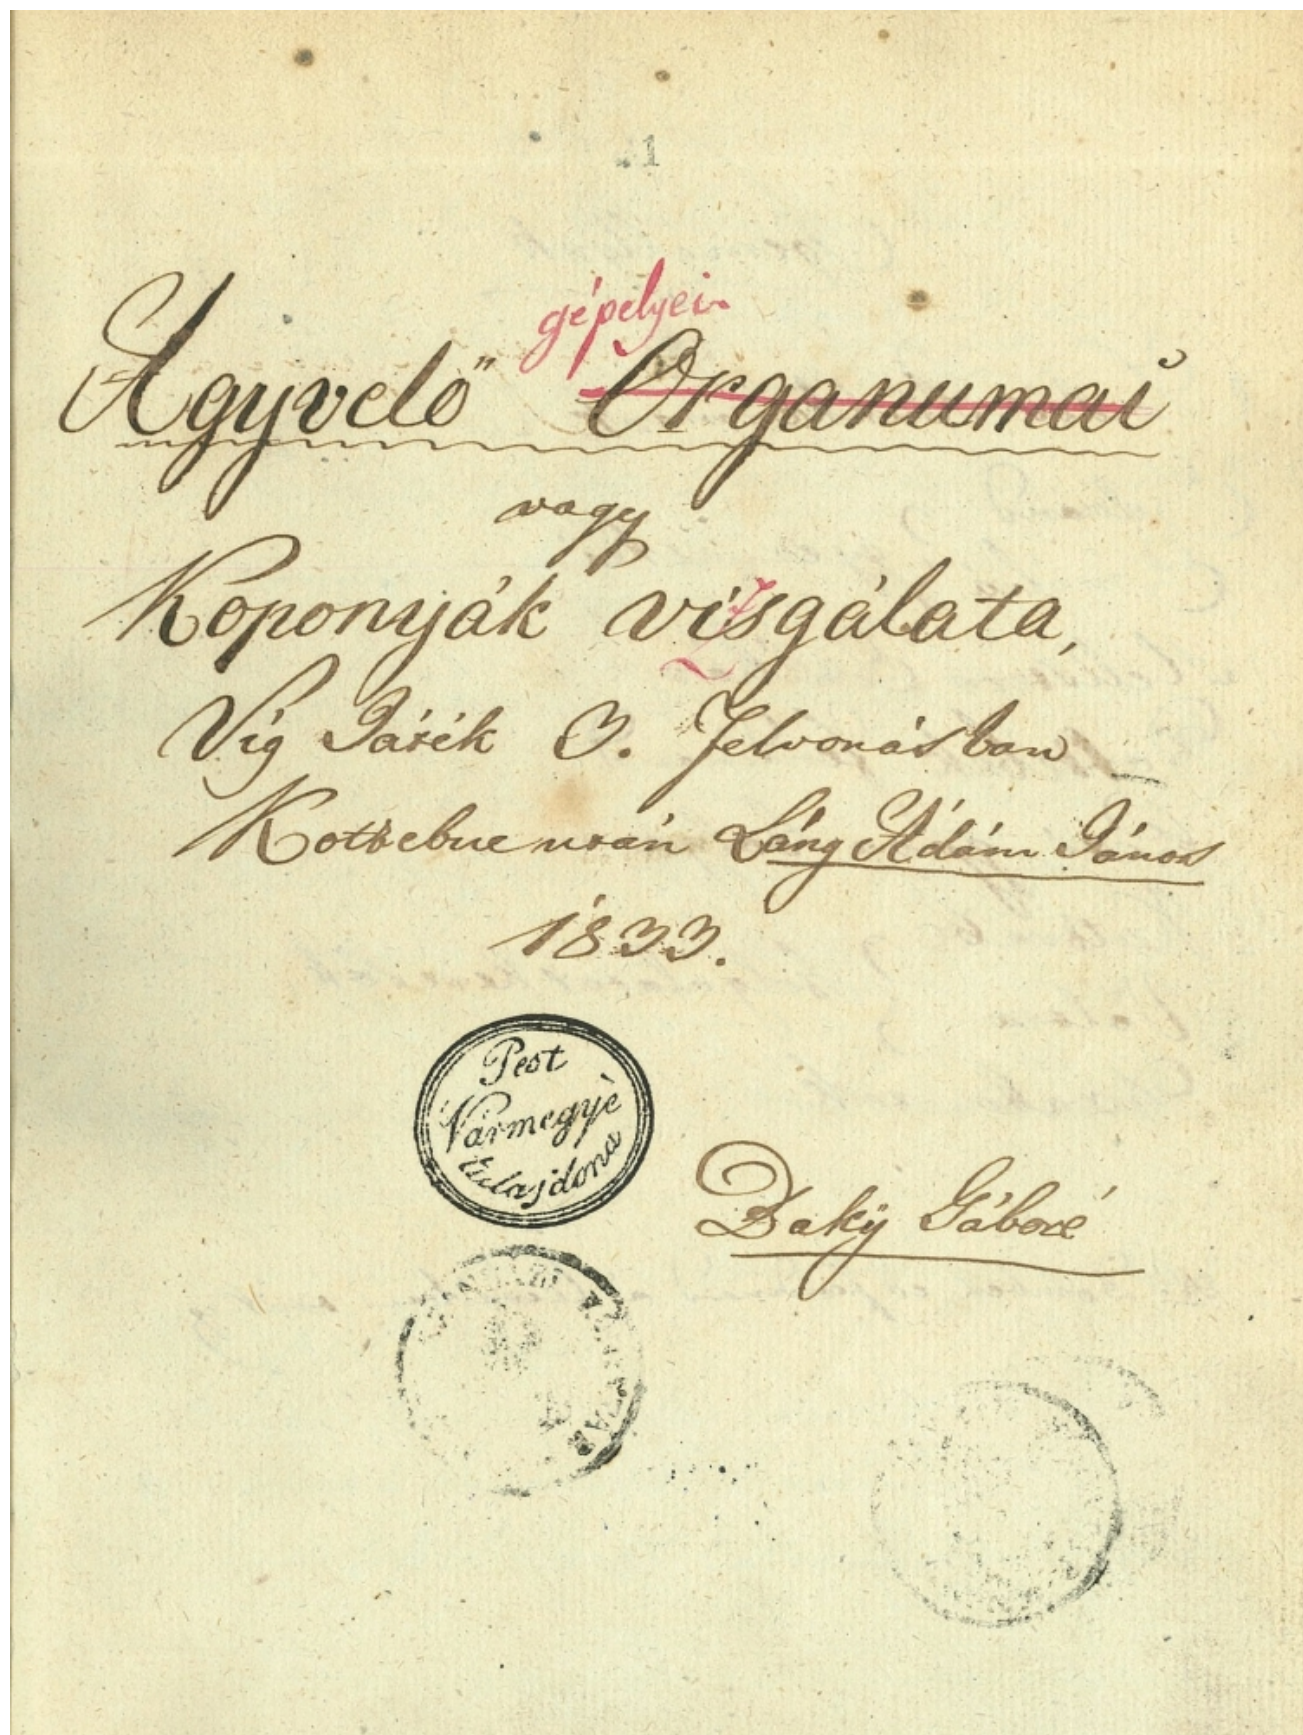 1
gépelyei
Agyvelő Organumai
vagy
Koponyák vizsgálata,
Víg Játék 3. Felvonásban
Kotzebue után Láng Ádám János
1833.
Pest
Vármegye
tulajdona
Daky Gáboré